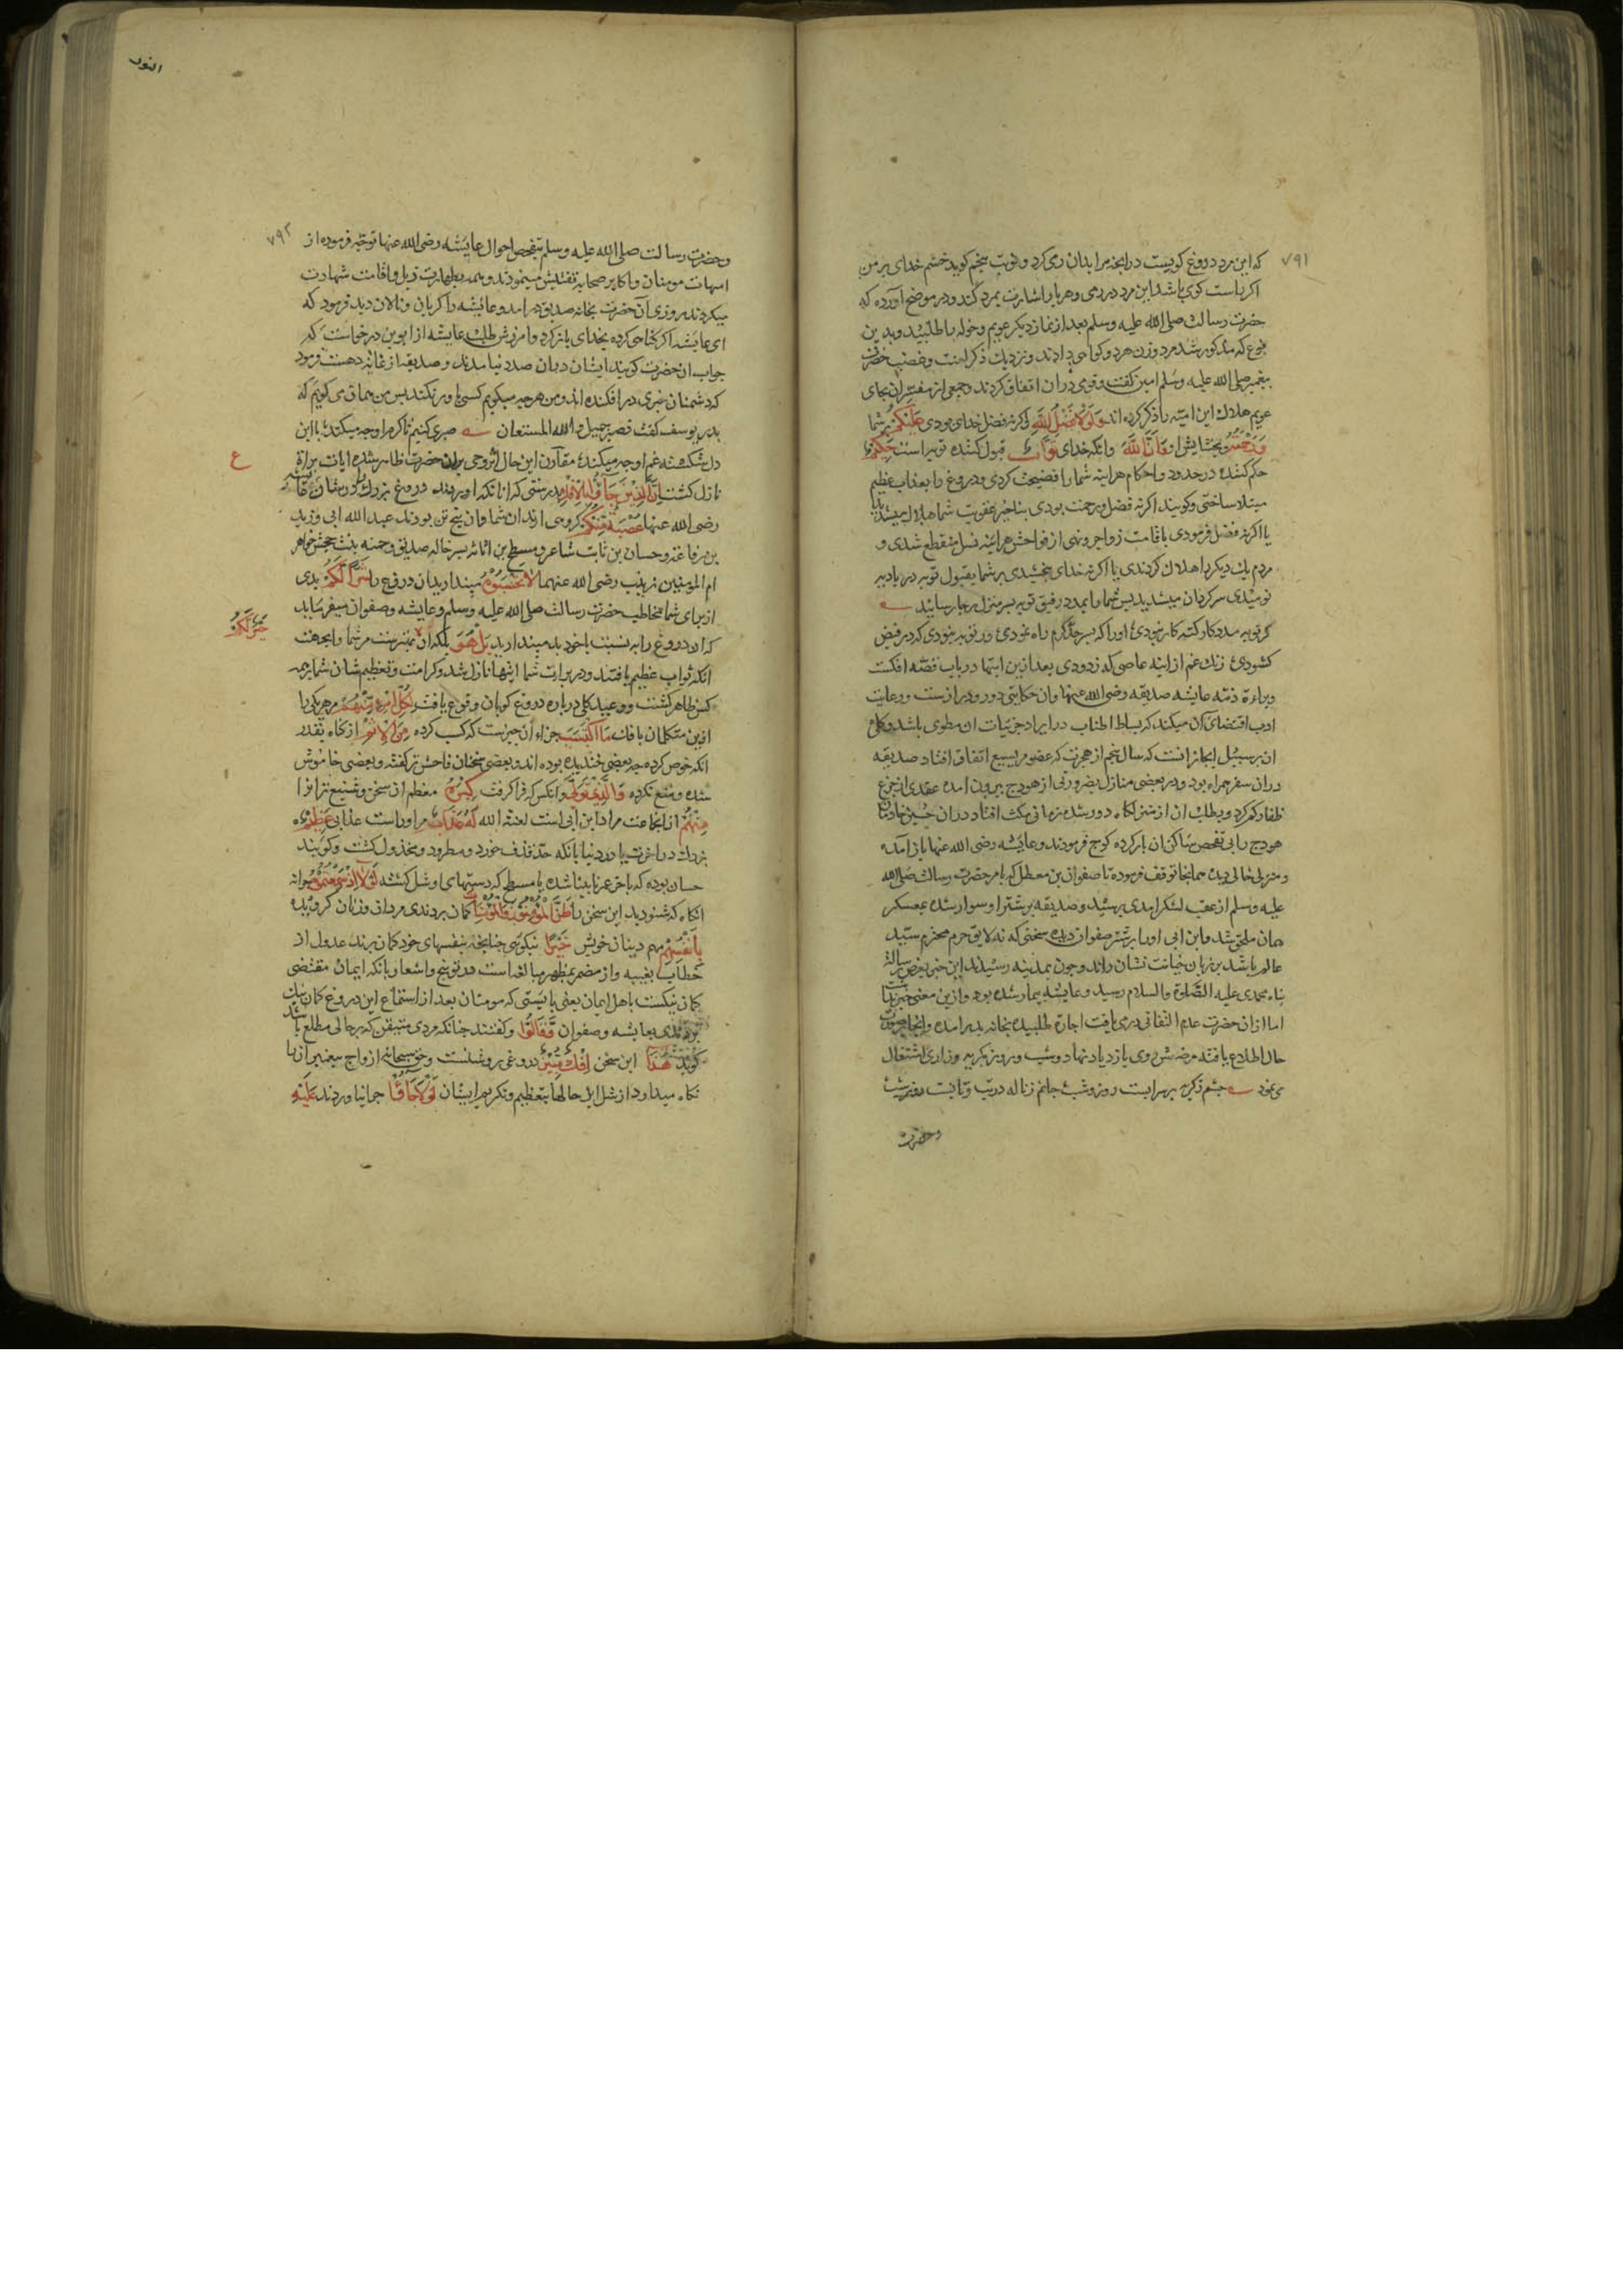 ۷۹۱
که این مرد دروغ کویست در آنچه مرا بدان رمی کرد و نوبت پنجم کوید خشم خدای بر من
اکر راست کوی باشد این مرد در رمی و هر بار اشارت بمرد کند و در موضح آورده که
حضرت رسالت صلی الله علیه وسلم بعد از نماز دیکر عویم و خوله را طلبید و بدین
نوع که مذکور شد مرد و زن هر دو کواهی دادند و نزدیک ذکر لعنت و غضب حضرت
پیغمبر صلی الله علیه وسلم امین کفت و قوم دران اتفاق کردند و جمعی از مفسران بجای
عویم هلال ابن امیّه را ذکر کرده اند وَلَوْلَا فَضْلُ اللّٰهِ و اکر نه فضل خدای بودی عَلَيْكُمْ بر شما
وَرَحْمَتُهُ و بخشایش او وَاَنَّ اللّٰهَ و انکه خدای تَوَّابٌ قبول کننده توبه است حَكِيمٌ
حکم کننده در حدود و احکام هراینه شما را فضیحت کردی و دروغ را بعذاب عظیم
مبتلا ساختی و کویند اکر نه فضل و رحمت بودی بتاخیر عقوبت شما هلاک میشدید
یا اکر نه فضل فرمودی باقامت زواجر و نهی از فواحش هراینه نسل منقطع شدی و
مردم یک دیکر را هلاک کردندی یا اکر نه خدای بخشیدی بر شما بقبول توبه در بادیه
نومیدی سرکردان میشدید پس شما را بمدد رفیق توبه بسر منزل رجا رسانید
کر توبه مددکار کنه کار نبودی او را که بسر حد کرم راه نمودی ور توبه نبودی که در فیض
کشودی زنک غم از اینه عاصی که زدودی بعد ازین ایتها در باب قصّه افکست
وبراءة ذمّه عایشه صدیقه رضی الله عنها وان حکایتی دور و درازست و رعایت
ادب اقتضای آن میکند که بساط اطناب در ایراد جزئیات ان مطوی باشد و کلام
ان بر سبیل ایجاز انست که سال پنجم از هجرت که غضو مریسیع اتفاق افتاد صدیقه
دران سفر همراه بود و در بعضی منازل بضرورتی از هودج بیرون آمده عقدی از جزع
ظفار کم کرد و بطلب ان از منزلکاه دور شده زمانی مکث افتاد دران حین خادمان
هودج را بی تفحص ساکن ان بار کرده کوچ فرمودند و عایشه رضی الله عنها باز آمده
و منزل خالی دید همانجا توقف فرموده تا صفوان بن معطل که بامر حضرت رسالت صلی الله
علیه وسلم از عقب لشکر امدی برسید و صدیقه بر شتر او سوار شده بمعسکر
همان ملحق شد و ابن ابی او را بر شتر صفوان دیده سخنی که نه لایق حرم محترم سیّد
عالم باشد بر زبان خیانت نشان راند و چون بمدینه رسیدند این خبر بعرض رسالة
پناه محمدی علیه الصلوة والسلام رسید و عایشه بیمار شده بود و ازین معنی خبر نداشت
اما ازان حضرت عدم التفاتی در می یافت اجازة طلبیده بخانه پدر امده و انجا بر صورت
حال اطلاع یافته مرضش روی بازدیاد نهاد و شب و روز بکریه و زاری اشتغال
می نمود چشم ز کریه بر سر ابست روز و شب جانم ز ناله در تب و تابست روز و شب
وحضرت
النور
۷۹۲
وحضرت رسالت صلی الله علیه وسلم بتفحص احوال عایشه رضی الله عنها توجه فرموده از
امهات مومنان و اکابر صحابه تفتیش مینمودند و همه بطهارت ذیل او اقامت شهادت
میکردند روزی آن حضرت بخانه صدیق در امد و عایشه را کریان و نالان دید فرمود که
ای عایشه اکر کناهی کرده بخدای باز کرد و امرزش طلب عایشه از ابوین درخواست که
جواب ان حضرت کویند ایشان دران صدد نیامدند و صدیقه از غایة دهشت فرمود
که دشمنان خبری در افکنده اند و من هر چه میکویم کسی باور نکند پس من همان می کویم که
پدر یوسف کفت فصبر جمیل والله المستعان صبری کنیم تا کرم او چه میکند با این
دل شکسته غم او چه میکند مقارن این حال اثر وحی بران حضرت ظاهر شده ایات براة
نازل کشت اِنَّ الَّذِينَ جَاؤُا بِالْاِفْكِ بدرستی که انانکه اوردند دروغ بزرک در شان عایشه
رضی الله عنها عُصْبَةٌ مِنْكُمْ کروهی اند از شما وان پنج تن بودند عبد الله ابی و زید
بن رفاعه و حسان بن ثابت شاعر و مسطح بن اثاثه پسر خاله صدیق و حمنه بنت جحش خواهر
ام المومنین زینب رضی الله عنهما لَا تَحْسَبُوهُ مپندارید ان دروغ را شَرًّا لَكُمْ بدی
از برای شما مخاطب حضرت رسالت صلی الله علیه وسلم و عایشه و صفوان میفرماید
که ان دروغ را به نسبت با خود بد مپندارید بَلْ هُوَ بلکه ان بهترست مر شما را بجهت
خَيْرٌ لَكُمْ
انکه ثواب عظیم یافتید و در براءت شما ایتها نازل شد و کرامت و تعظیم شان شما بر همه
کس ظاهر کشت و وعید کلی درباره دروغ کویان وقوع یافت لِكُلِّ امْرِئٍ مِنْهُمْ مر هر یکی را
ازین متکلمان بافک مَا اكْتَسَبَ جزاء ان چیزست که کسب کرده مِنَ الْاِثْمِ از کناه بقدر
انکه خوض کرده چه بعضی خندیده بوده اند و بعضی سخنان فاحش تر کفته و بعضی خاموش
شده و منع نکرده وَالَّذِي تَوَلَّى و انکس که فرا کرفت كِبْرَهُ معظم ان سخن و شنیع تر انرا
مِنْهُمْ از انجماعت مراد ابن ابی است لعنه الله لَهُ عَذَابٌ مر او راست عذابی عَظِيمٌ
بزرک در اخرت یا در دنیا بانکه حد قذف خورد و مطرود و مخذول کشت و کویند
حسان بوده که باخر عمر نابینا شده یا مسطح که دستهای او شل کشته لَوْلَا اِذْ سَمِعْتُمُوهُ چرا نه
انکاه که شنودید این سخن را ظَنَّ الْمُؤْمِنُونَ وَالْمُؤْمِنَاتُ کمان بردندی مردان و زنان کرویده
بِاَنْفُسِهِمْ بهم دینان خویش خَيْرًا نیکوئی چنانچه بنفسهای خود کمان برند عدول از
خطاب بغیبه و از مضمر بمظهر مبالغه است در توبیخ و اشعار بانکه ایمان مقتضی
کمان نیکست باهل ایمان یعنی بایستی که مومنان بعد از استماع این دروغ کمان نیک
بردندی بعایشه و صفوان وَقَالُوا و کفتند چنانکه مردی متیقن که بر حالی مطلع باشد
کوید هَذَا این سخن اِفْكٌ مُبِينٌ دروغی روشنست و حق سبحانه ازواج پیغمبر را
نکاه میدارد از مثل این حالها بتعظیم و تکریم ایشان لَوْلَا جَاؤُا چرا نیاوردند عَلَيْهِ